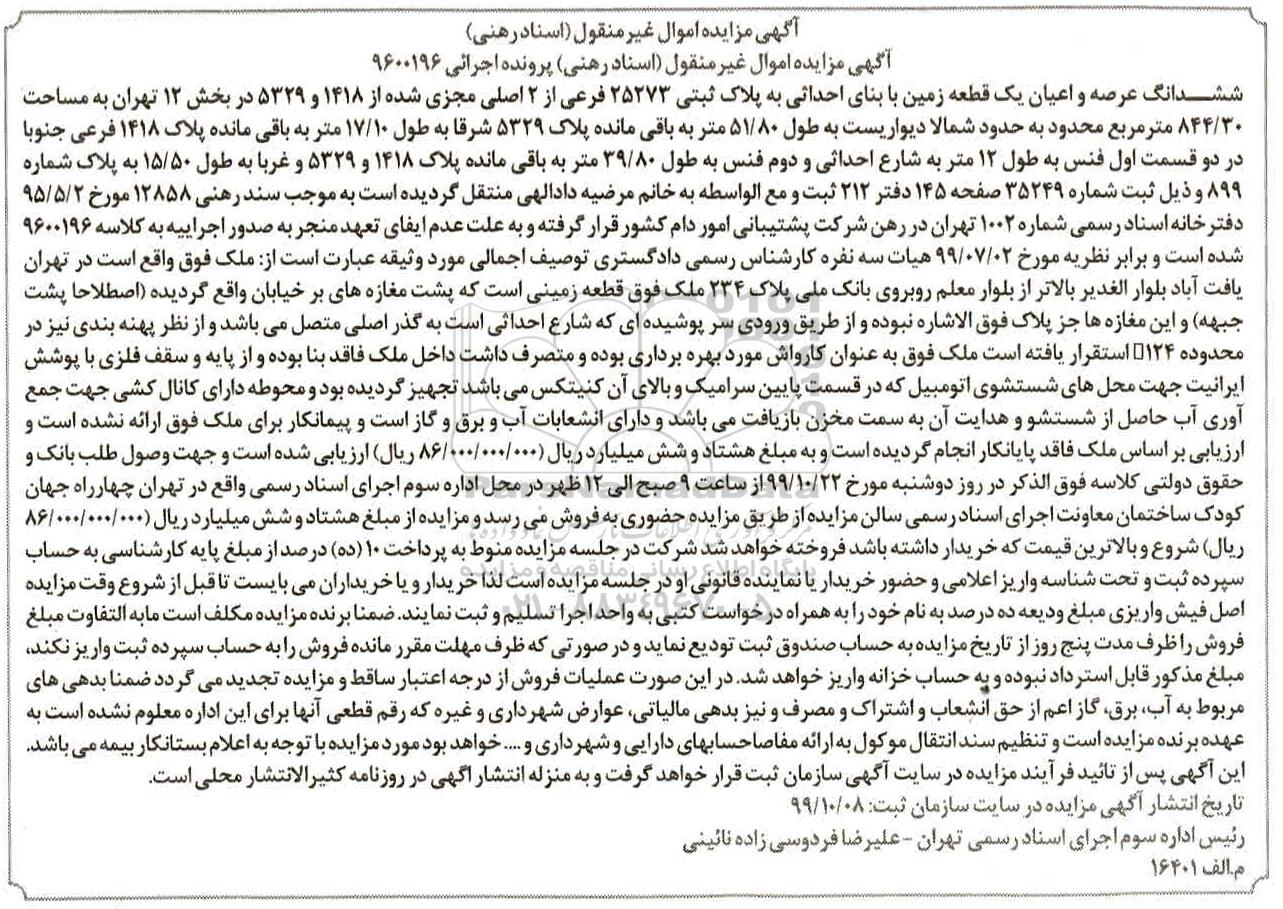 آگهی مزایده اموال غیر منقول (اسناد رهنی)
آگهی مزایده اموال غیر منقول (اسناد رهنی) پرونده اجرائی ۹۶۰۰۱۹۶
ششـــدانگ عرصه و اعیان یک قطعه زمین با بنای احداثی به پلاک ثبتی ۲۵۲۷۳ فرعی از ۲ اصلی مجزی شده از ۱۴۱۸ و ۵۳۲۹ در بخش ۱۲ تهران به مساحت
۸۴۴/۳۰ مترمربع محدود به حدود شمالا دیواریست به طول ۵۱/۸۰ متر به باقی مانده پلاک ۵۳۲۹ شرقا به طول ۱۷/۱۰ متر به باقی مانده پلاک ۱۴۱۸ فرعی جنوبا
در دو قسمت اول فنس به طول ۱۲ متر به شارع احداثی و دوم فنس به طول ۳۹/۸۰ متر به باقی مانده پلاک ۱۴۱۸ و ۵۳۲۹ و غربا به طول ۱۵/۵۰ به پلاک شماره
۸۹۹ و ذیل ثبت شماره ۳۵۲۴۹ صفحه ۱۴۵ دفتر ۲۱۲ ثبت و مع الواسطه به خانم مرضیه دادالهی منتقل گردیده است به موجب سند رهنی ۱۲۸۵۸ مورخ ۹۵/۵/۲
دفترخانه اسناد رسمی شماره ۱۰۰۲ تهران در رهن شرکت پشتیبانی امور دام کشور قرار گرفته و به علت عدم ایفای تعهد منجر به صدور اجراییه به کلاسه ۹۶۰۰۱۹۶
شده است و برابر نظریه مورخ ۹۹/۰۷/۰۲ هیات سه نفره کارشناس رسمی دادگستری توصیف اجمالی مورد وثیقه عبارت است از: ملک فوق واقع است در تهران
یافت آباد بلوار الغدیر بالاتر از بلوار معلم روبروی بانک ملی پلاک ۲۳۴ ملک فوق قطعه زمینی است که پشت مغازه های بر خیابان واقع گردیده (اصطلاحا پشت
جبهه) و این مغازه ها جز پلاک فوق الاشاره نبوده و از طریق ورودی سر پوشیده ای که شارع احداثی است به گذر اصلی متصل می باشد و از نظر پهنه بندی نیز در
محدوده □۱۲۴ استقرار یافته است ملک فوق به عنوان کارواش مورد بهره برداری بوده و متصرف داشت داخل ملک فاقد بنا بوده و از پایه و سقف فلزی با پوشش
ایرانیت جهت محل های شستشوی اتومبیل که در قسمت پایین سرامیک و بالای آن کنیتکس می باشد تجهیز گردیده بود و محوطه دارای کانال کشی جهت جمع
آوری آب حاصل از شستشو و هدایت آن به سمت مخزن بازیافت می باشد و دارای انشعابات آب و برق و گاز است و پیمانکار برای ملک فوق ارائه نشده است و
ارزیابی بر اساس ملک فاقد پایانکار انجام گردیده است و به مبلغ هشتاد و شش میلیارد ریال (۸۶/۰۰۰/۰۰۰/۰۰۰ ریال) ارزیابی شده است و جهت وصول طلب بانک و
حقوق دولتی کلاسه فوق الذکر در روز دوشنبه مورخ ۹۹/۱۰/۲۲ از ساعت ۹ صبح الی ۱۲ ظهر در محل اداره سوم اجرای اسناد رسمی واقع در تهران چهارراه جهان
کودک ساختمان معاونت اجرای اسناد رسمی سالن مزایده از طریق مزایده حضوری به فروش می رسد و مزایده از مبلغ هشتاد و شش میلیارد ریال (۸۶/۰۰۰/۰۰۰/۰۰۰
ریال) شروع و بالاترین قیمت که خریدار داشته باشد فروخته خواهد شد شرکت در جلسه مزایده منوط به پرداخت ۱۰ (ده) درصد از مبلغ پایه کارشناسی به حساب
سپرده ثبت و تحت شناسه واریز اعلامی و حضور خریدار یا نماینده قانونی او در جلسه مزایده است لذا خریدار و یا خریداران می بایست تا قبل از شروع وقت مزایده
اصل فیش واریزی مبلغ ودیعه ده درصد به نام خود را به همراه درخواست کتبی به واحد اجرا تسلیم و ثبت نمایند. ضمنا برنده مزایده مکلف است مابه التفاوت مبلغ
فروش را ظرف مدت پنج روز از تاریخ مزایده به حساب صندوق ثبت تودیع نماید و در صورتی که ظرف مهلت مقرر مانده فروش را به حساب سپرده ثبت واریز نکند،
مبلغ مذکور قابل استرداد نبوده و به حساب خزانه واریز خواهد شد. در این صورت عملیات فروش از درجه اعتبار ساقط و مزایده تجدید می گردد ضمنا بدهی های
مربوط به آب، برق، گاز اعم از حق انشعاب و اشتراک و مصرف و نیز بدهی مالیاتی، عوارض شهرداری و غیره که رقم قطعی آنها برای این اداره معلوم نشده است به
عهده برنده مزایده است و تنظیم سند انتقال موکول به ارائه مفاصاحسابهای دارایی و شهرداری و .... خواهد بود مورد مزایده با توجه به اعلام بستانکار بیمه می باشد.
این آگهی پس از تائید فرآیند مزایده در سایت آگهی سازمان ثبت قرار خواهد گرفت و به منزله انتشار اگهی در روزنامه کثیرالانتشار محلی است.
تاریخ انتشار آگهی مزایده در سایت سازمان ثبت: ۹۹/۱۰/۰۸
رئیس اداره سوم اجرای اسناد رسمی تهران - علیرضا فردوسی زاده نائینی
م.الف ۱۶۴۰۱
ParsNamadData
پایگاه اطلاع رسانی مناقصه و مزایده
۰۲۱-۸۸۳۴۹۶۷۰-۵